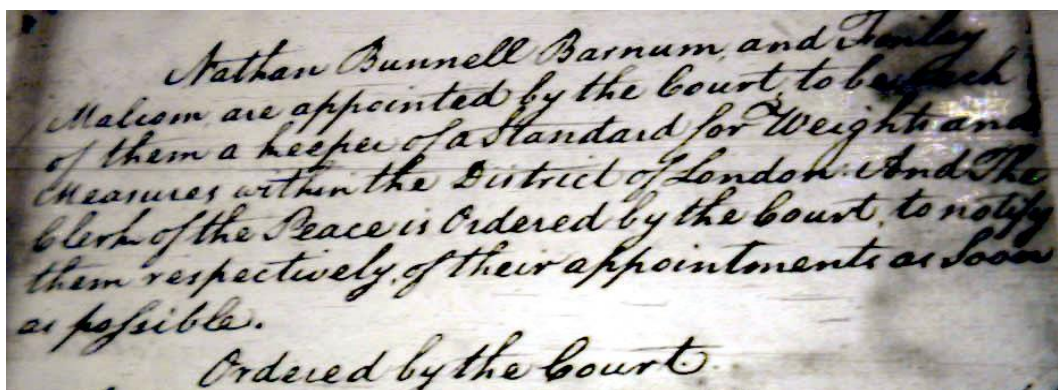 Nathan Bunnell Barnum, and Finlay
Malcom are appointed by the Court, to be each
of them a keeper of a Standard for Weights and
Measures within the District of London. And The
Clerk of the Peace is Ordered by the Court, to notify
them respectively, of their appointments as Soon
as poſsible.
Ordered by the Court.